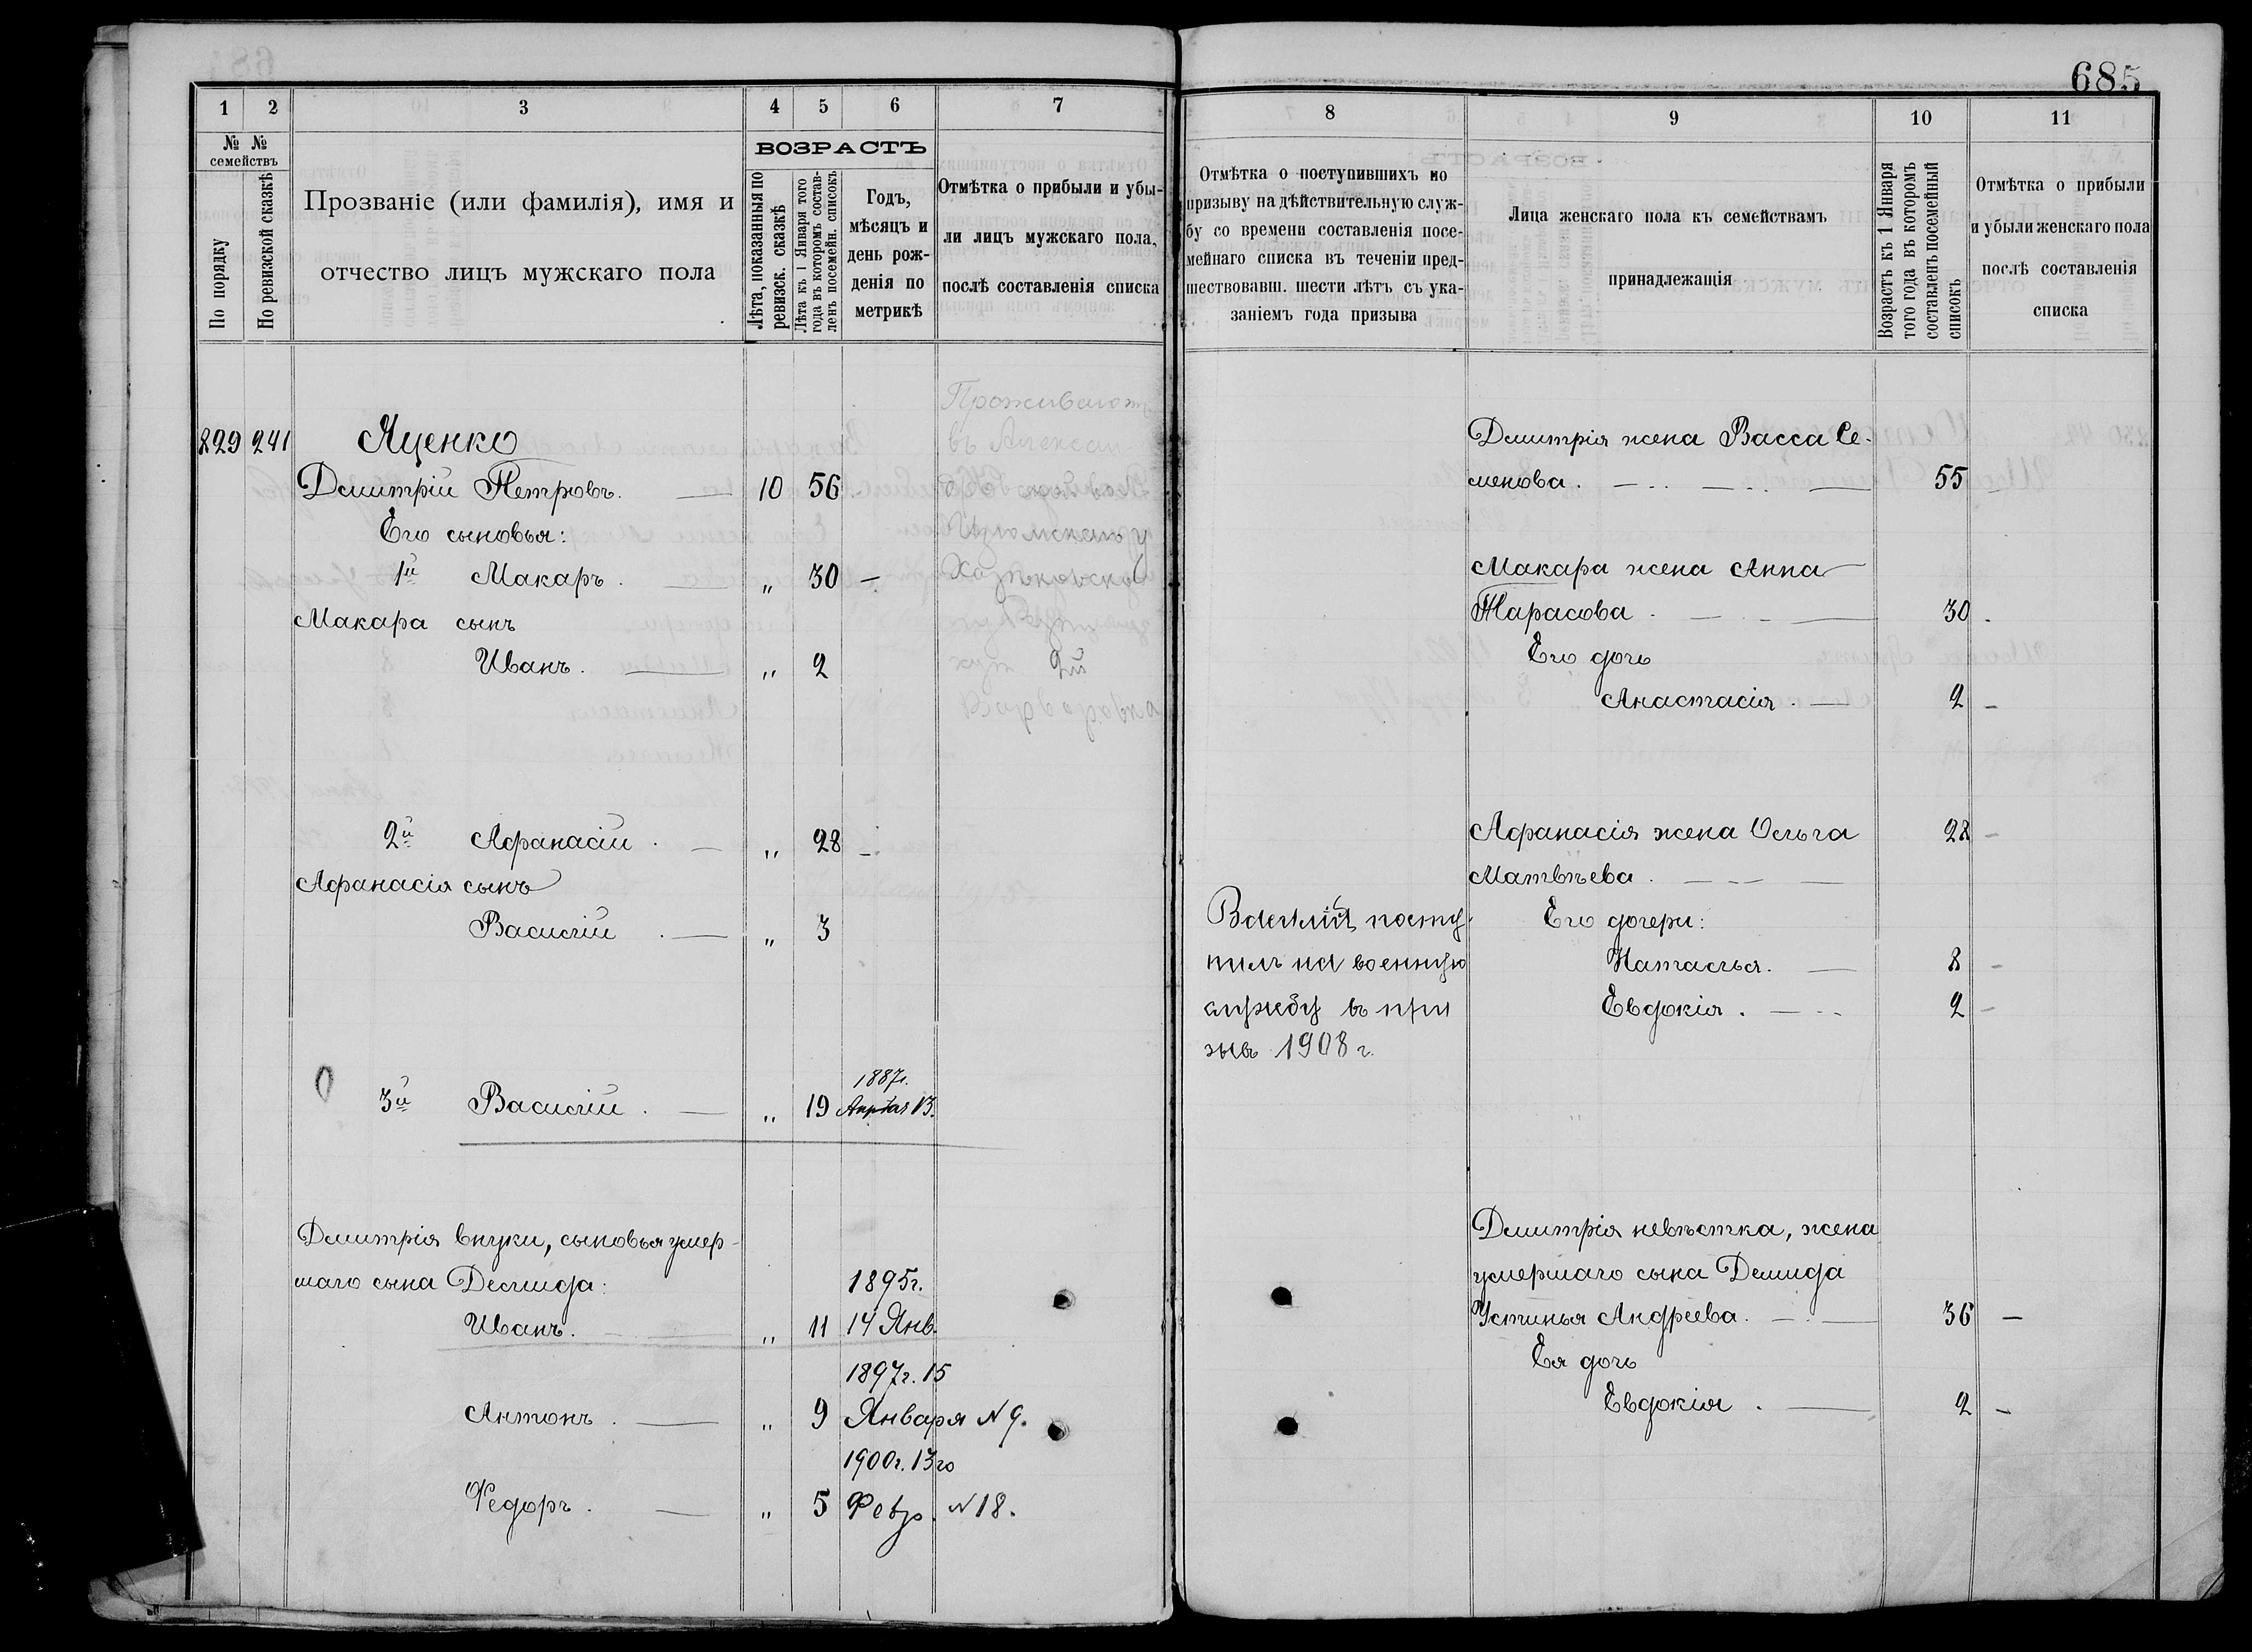 685
1 2 3 4 5 6 7
№ №
семействъ
По порядку
По ревизской сказкѣ
Прозваніе (или фамилія), имя и
отчество лицъ мужскаго пола
ВОЗРАСТЪ
Лѣта, показанныя по
ревизск. сказкѣ
Лѣта къ 1 Января того
года въ которомъ состав-
ленъ посемейн. списокъ
Годъ,
мѣсяцъ и
день рож-
денія по
метрикѣ
Отмѣтка о прибыли и убы-
ли лицъ мужскаго пола,
послѣ составленія списка
829 241 Яценко
Дмитрій Петровъ. — 10 56
Его сыновья:
1й Макаръ. — „ 30 —
Макара сынъ
Иванъ. — „ 2
Проживаютъ
въ Алексан
Изюмскаго у
2й
2й Афанасій. — „ 28 —
Афанасія сынъ
Василій. — „ 3
1887г.
3й Василій. — „ 19 Апрѣля 13.
Дмитрія внуки, сыновья умер-
шаго сына Демида:
1895г.
Иванъ. — „ 11 14 Янв.
1897г. 15
Антонъ. — „ 9 Января № 9.
1900г. 13го
Федоръ. — „ 5 Февр. № 18.
8 9 10 11
Отмѣтка о поступившихъ по
призыву на дѣйствительную служ-
бу со времени составленія посе-
мейнаго списка въ теченіи пред-
шествовавш. шести лѣтъ съ ука-
заніемъ года призыва
Лица женскаго пола къ семействамъ
принадлежащія
Возрастъ къ 1 Января
того года въ которомъ
составленъ посемейный
списокъ
Отмѣтка о прибыли
и убыли женскаго пола
послѣ составленія
списка
Дмитрія жена Васса Се-
менова. — 55
Макара жена Анна
Тарасова. — 30
Его дочь
Анастасія. — 2 —
Афанасія жена Ольга 28 —
Матвѣева. —
Его дочери:
Наталья. — 8 —
Евдокія. — 2 —
Василій посту-
пилъ на военную
службу въ при
зывъ 1908 г.
Дмитрія невѣстка, жена
умершаго сына Демида
Устинья Андреева. — 36 —
Ея дочь
Евдокія. — 2 —